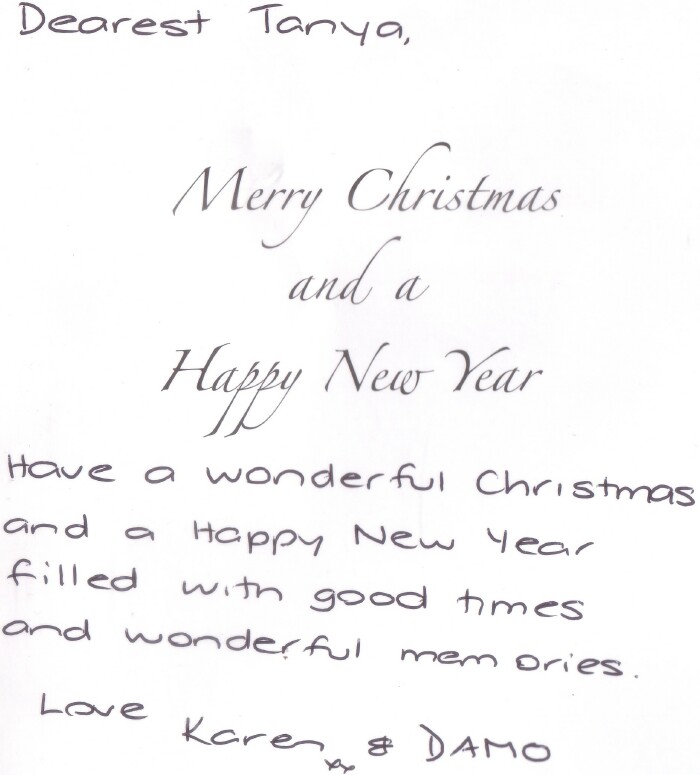 Dearest Tanya,
Merry Christmas
and a
Happy New Year
Have a wonderful Christmas
and a Happy New Year
filled with good times
and wonderful memories.
Love
Karen xx & DAMO